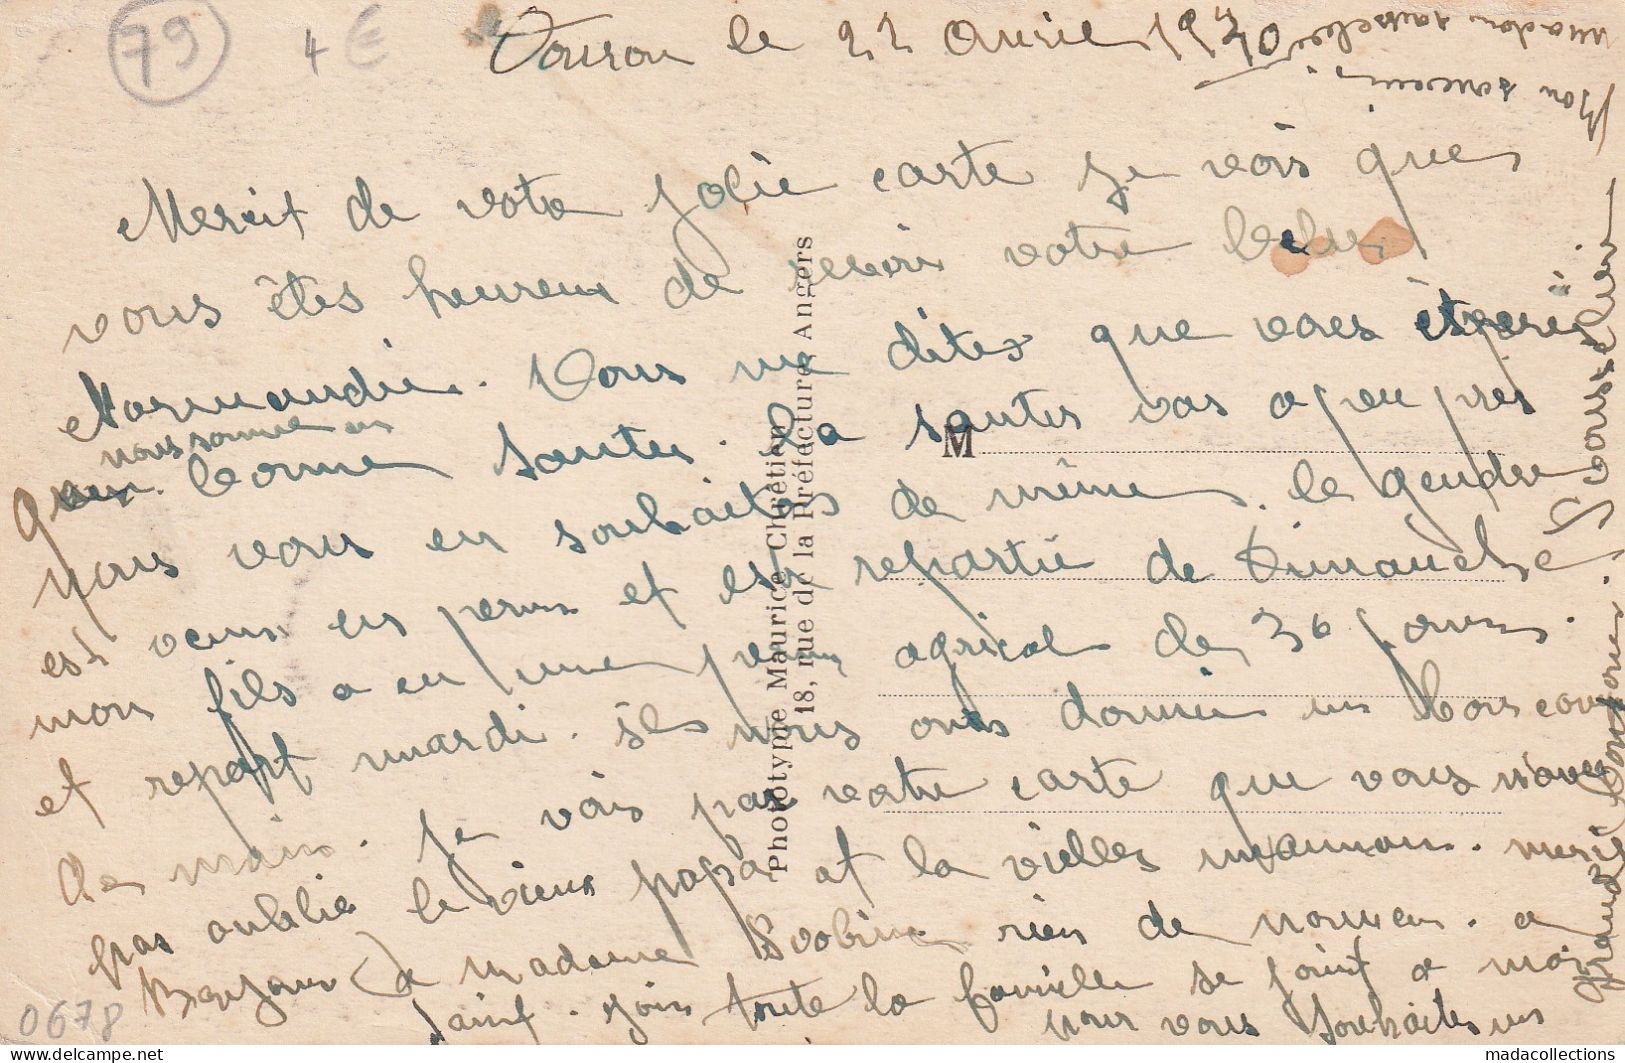 79
4 €
le 22 Avril 1940
Mon souvenir
Mercit de votre jolie carte je vois que
vous êtes heureux de revoir votre belle
Normandie. Vous me dites que vous
nous somme en
bonne Santer. la santer vas a peu près
nous vous en souhaites de même. le gendre
est venus en perms et est repartie de Dimanche
mon fils a eu une perm agricol de 30 jours.
et repart mardi. Ils nous onts donnée un bons coup
de main. Je vois pas votre carte que vous n'avez
pas oublié le vieux papa et la vielles maman. merci
Bonjour a madame rien de nouveau. a
Saint. toute la famille se joint a moi
pour vous souhaites un
grand Bonjour.
Phototypie Maurice Chrétien
18, rue de la Préfecture, Angers
M
0678
madacollections